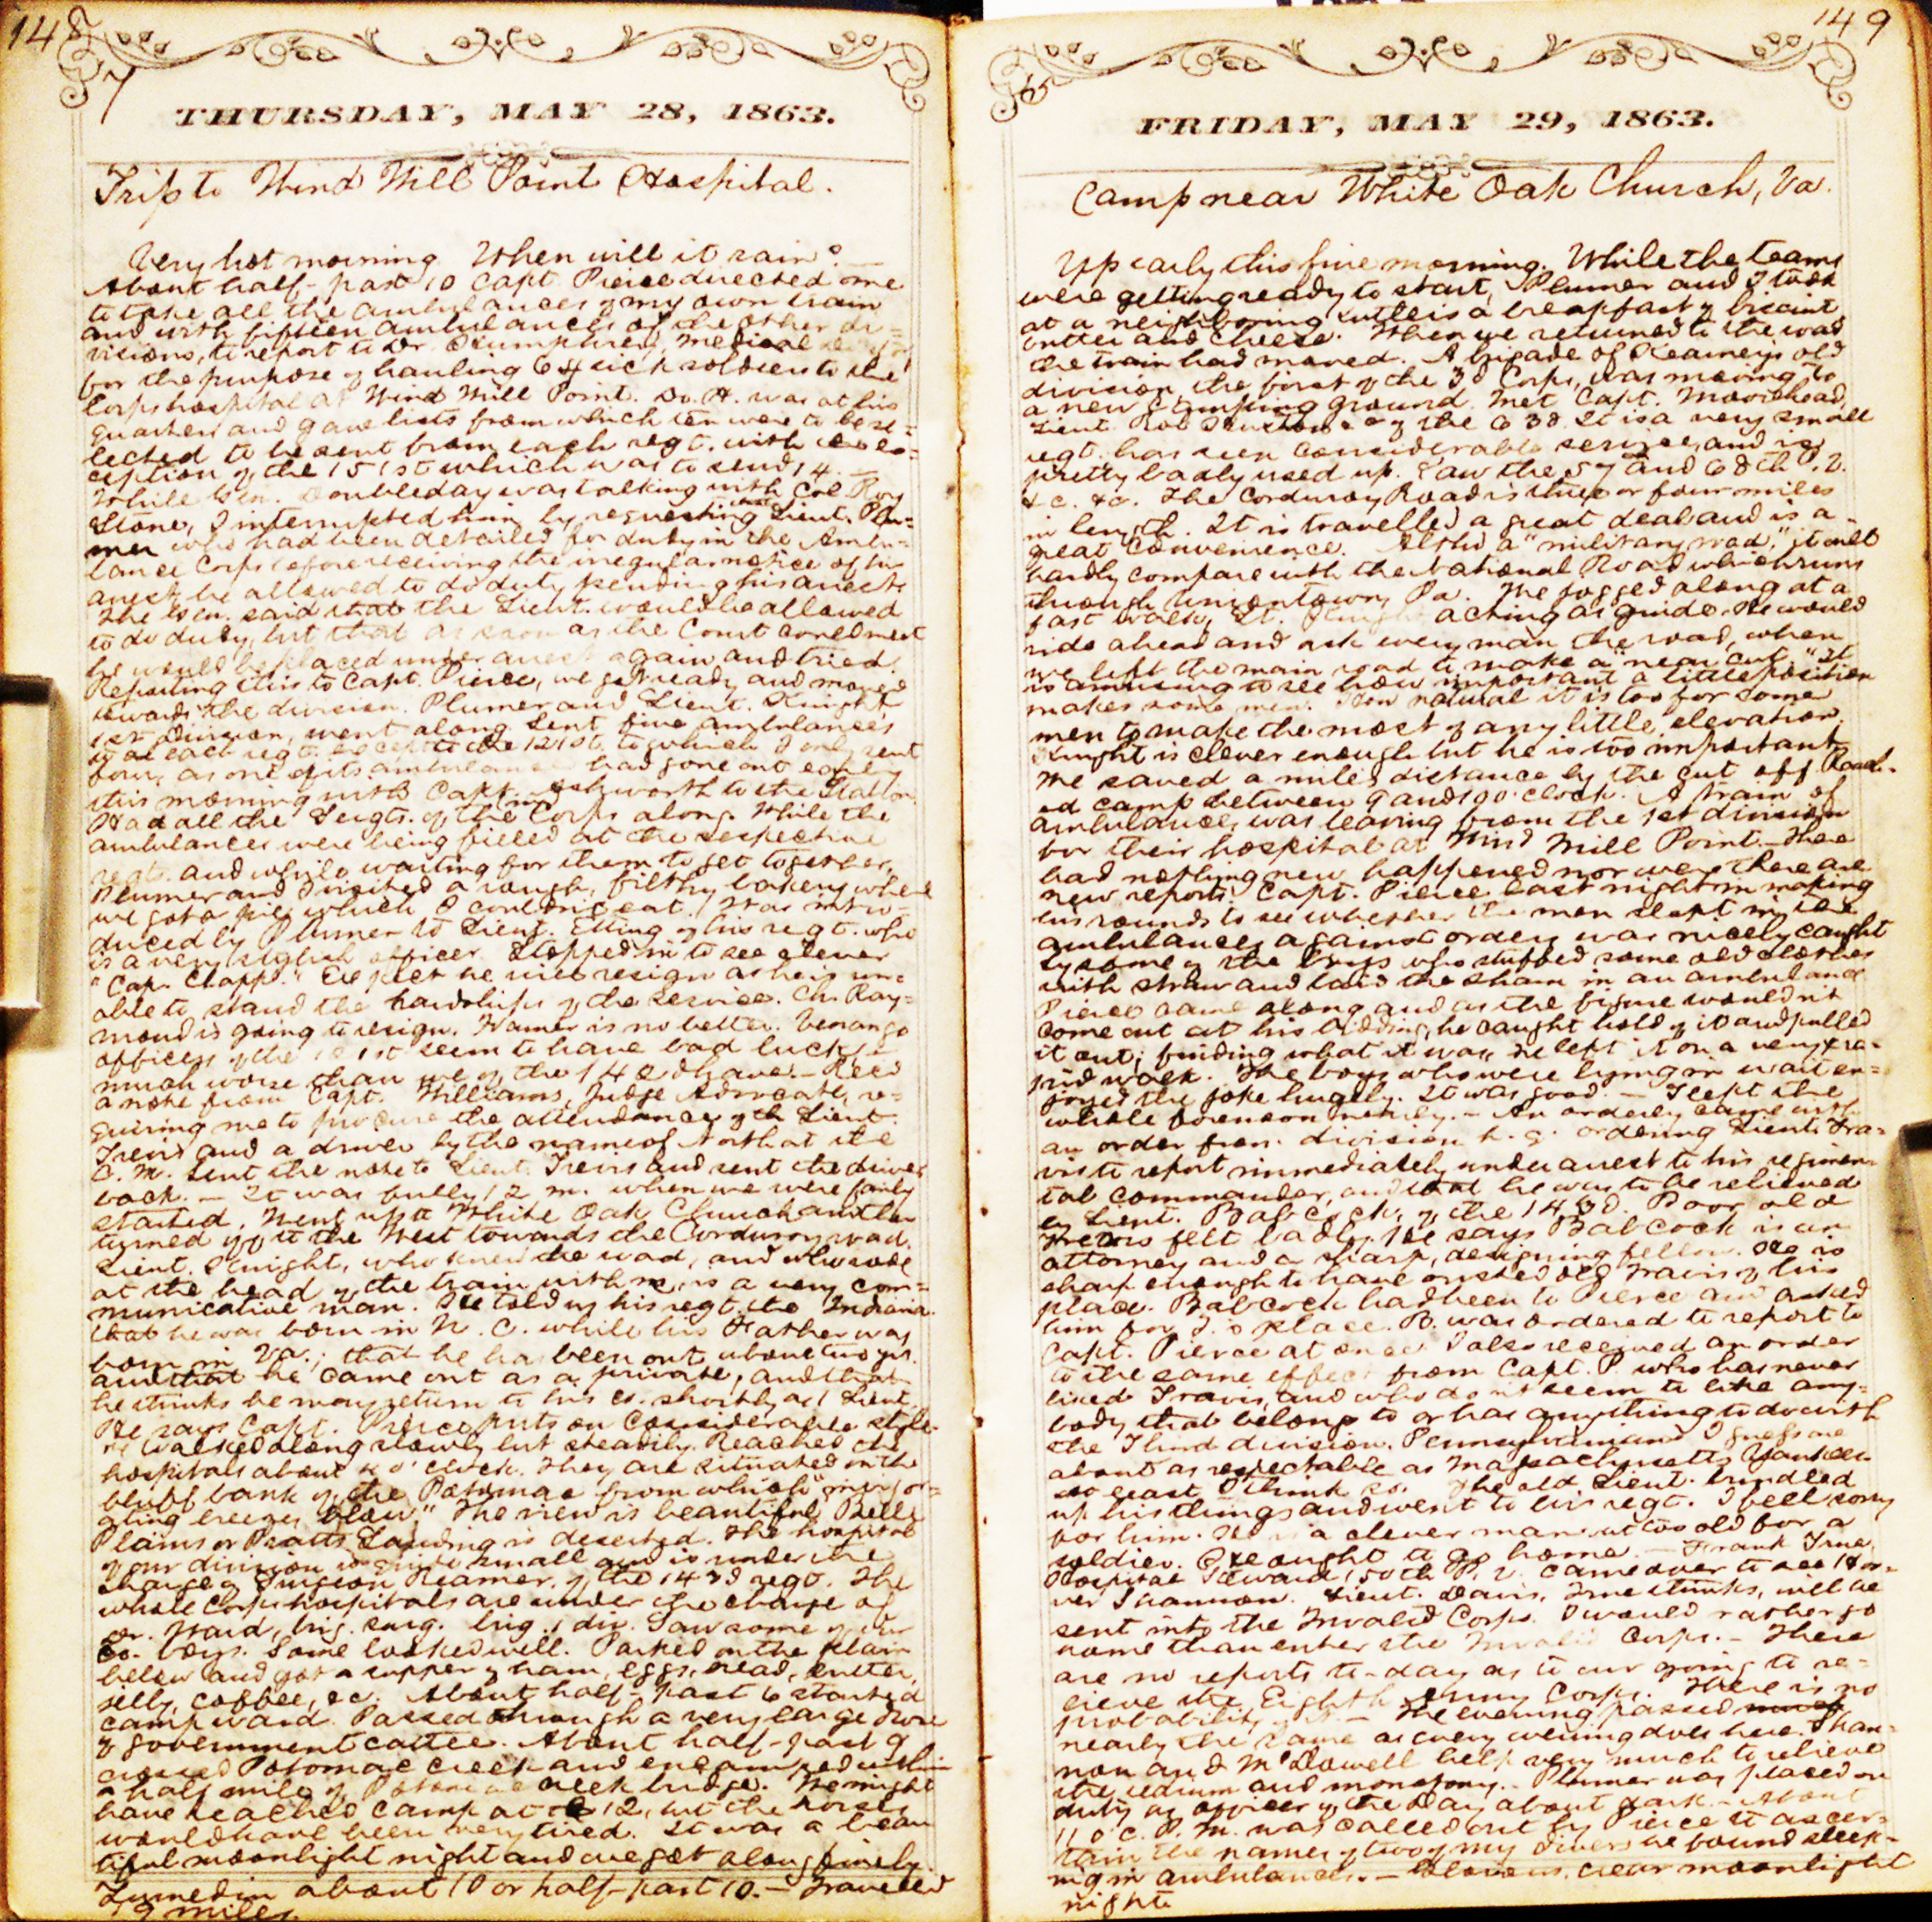 148
7
THURSDAY, MAY 28, 1863.
Trip to Wind Mill Point Hospital.
Very hot morning. When will it rain? —
About half-past 10 Capt. Pierce directed me
to take all the ambulances of my own train
and with fifteen ambulances of the other di=
visions, to report to Dr. Humphrey, Medical
for the purpose of hauling 64 sick soldiers to the
Corps hospital at Wind Mill Point. Dr. H. was at his
quarters and gave lists from which ten were to be se=
lected to be sent from each regt. with the ex=
ception of the 151st which was to send 14. —
While Gen. Doubleday was talking with Col. Roy
Stone, I interrupted him by requesting that Lieut. Plu=
mer who had been detailed for duty in the Ambu=
lance Corps before receiving the irregular notice of his
arrest, be allowed to do duty pending his arrest.
The Gen. said that the Lieut. would be allowed
to do duty, but that as soon as the Court could meet
he would be placed under arrest again and tried.
Reporting this to Capt. Pierce, we got ready and moved
towards the division. Plumer and Lieut. Knight
1st Division, went along. Sent five ambulances
to each regt. except to the 121st, to which I only sent
four, as one of its ambulances had gone out early
this morning with Capt. Ashworth to the Station.
Had all the Sergts. of the Corps along. While the
ambulances were being filled at the respective
regts. and while waiting for them to get together,
Plumer and I visited a rough, filthy bakery where
we got a pie which I couldn't eat. Was intro=
duced by Plumer to Lieut. Etting of his regt. who
is a very stylish officer. Stopped in to see clever
"Cap. Clapp." Expect he will resign as he is un=
able to stand the hardships of the service. Ch. Ray=
mond is going to resign. Hamer is no better. Venango
officers of the 121st seem to have bad luck, —
much worse than we of the 142d have. — Recd
a note from Capt. Williams, Judge Advocate, re=
quiring me to procure the attendance of Lieut.
Trevis and a driver by the name of North at the
C. M. Sent the note to Lieut. Trevis and sent the driver
back. — It was fully 12 m. when we were fairly
started. Went up to White Oak Church and then
turned off to the West towards the Corduroy road.
Lieut. Knight, who knew the road, and who rode
at the head of the train with me, is a very com=
municative man. He told us his regt. the Indiana
that he was born in N. C. while his Father was
born in Va.; that he has been out about two yrs.
and that he came out as a private, and that
he thinks he may return to his co. shortly as 1 Lieut.
He says Capt. Pierce puts on considerable style.
We walked along slowly but steadily. Reached the
hospitals about 4 o'clock. They are situated on the
bluff bank of the Potomac from which "invigor=
ating breezes blow." The view is beautiful. Belle
Plains or Pratts Landing is deserted. The hospital
of our division is quite small and is under the
charge of Surgeon Reamer, of the 143d regt. The
whole Corps hospitals are under the charge of
Dr. Ward, brig. surg. brig. 1 div. Saw some of our
Co. boys. Some looked well. Parked on the plain
below and got a supper of ham, eggs, bread, butter,
jelly, coffee, &c. About half-past 6 started
campward. Passed through a very large drove
of government cattle. About half-past 9
crossed Potomac creek and encamped within
a half mile of Potomac creek bridge. We might
have reached camp at 12, but the horses
would have been very tired. It was a beau
tiful moonlight night and we got along finely.
Turned in about 10 or half-past 10. — Traveled
19 miles.
149
FRIDAY, MAY 29, 1863.
Camp near White Oak Church, Va.
Up early this fine morning. While the teams
were getting ready to start, Plumer and I took
at a neighboring sutlers a breakfast of biscuit,
butter and cheese. When we returned to the road
the train had moved. A brigade of Kearney's old
division, the first of the 3d Corps, was moving to
a new stamping ground. Met Capt. Moorehead,
Lieut. Rob of the 63d. It is a very small
regt. has seen considerable service, and is
pretty badly used up. Saw the 57 and 68th P. V.
&c. &c. The Corduroy Road is three or four miles
in length. It is travelled a great deal and is a
great convenience. Altho' a "military road," it will
hardly compare with the National Road which runs
through Uniontown, Pa. We jogged along at a
fast walk, Lt. Knight acting as guide. He would
ride ahead and ask every man the road, when
we left the main road to make a "near cut." It
is amusing to see how important a little position
makes some men. How natural it is too for some
men to make the most of any little elevation.
Knight is clever enough but he is too important.
We saved a mile's distance by the cut off. Reach=
ed camp between 9 and 10 o'clock. A train of
ambulances was leaving from the 1st division
for their hospital at Wind Mill Point. — There
had nothing new happened nor were there any
new reports. Capt. Pierce last night in making
his rounds to see whether the men slept in the
ambulances against orders was nicely caught
by some of the boys who stuffed some old clothes
with straw and laid the sham in an ambulance
Pierce came along and as the figure wouldn't
come out at his bidding, he caught hold of it and pulled
it out; finding what it was he left it on a very ra=
pid walk. The boys who were lying in wait en=
joyed the joke hugely. It was good. — Slept the
whole forenoon nearly. — An orderly came with
an order from division h. q. ordering Lieut. Tra=
vis to report immediately under arrest to his regimen=
tal commander, and that he was to be relieved
by Lieut. Babcock, of the 143d. Poor old
Trevis felt badly. He says Babcock is an
attorney and a sharp, designing fellow. He is
sharp enough to have ousted old Travis of his
place. Babcock had been to Pierce and asked
him for T.'s place. B. was ordered to report to
Capt. Pierce at once. I also received an order
to the same effect from Capt. P. who has never
liked Travis, and who don't seem to like any=
body that belongs to or has anything to do with
the Third division. Pennsylvanians I guess are
about as respectable as Massachusetts Yankees
at least I think so. The old Lieut. bundled
up his things and went to his regt. I feel sorry
for him. He is a clever man but too old for a
soldier. He ought to go home. — Frank True
Hospital Steward, 150th P. V. came over to see
Shannon. Lieut. Davis, True thinks, will be
sent into the Invalid Corps. I would rather go
home than enter the Invalid Corps. — There
are no reports to-day as to our going to re=
lieve the Eighth Army Corps. There is no
probability — The evening passed
nearly the same as every evening does here. Shan=
non and McDowell help very much to relieve
the tedium and monotony. — Plumer was placed on
duty as officer of the day about dark. — About
11 o'c. P. M. was called out by Pierce to ascer=
tain the names of two of my drivers he found sleep=
ing in ambulances. — Glorious, clear moonlight
night.